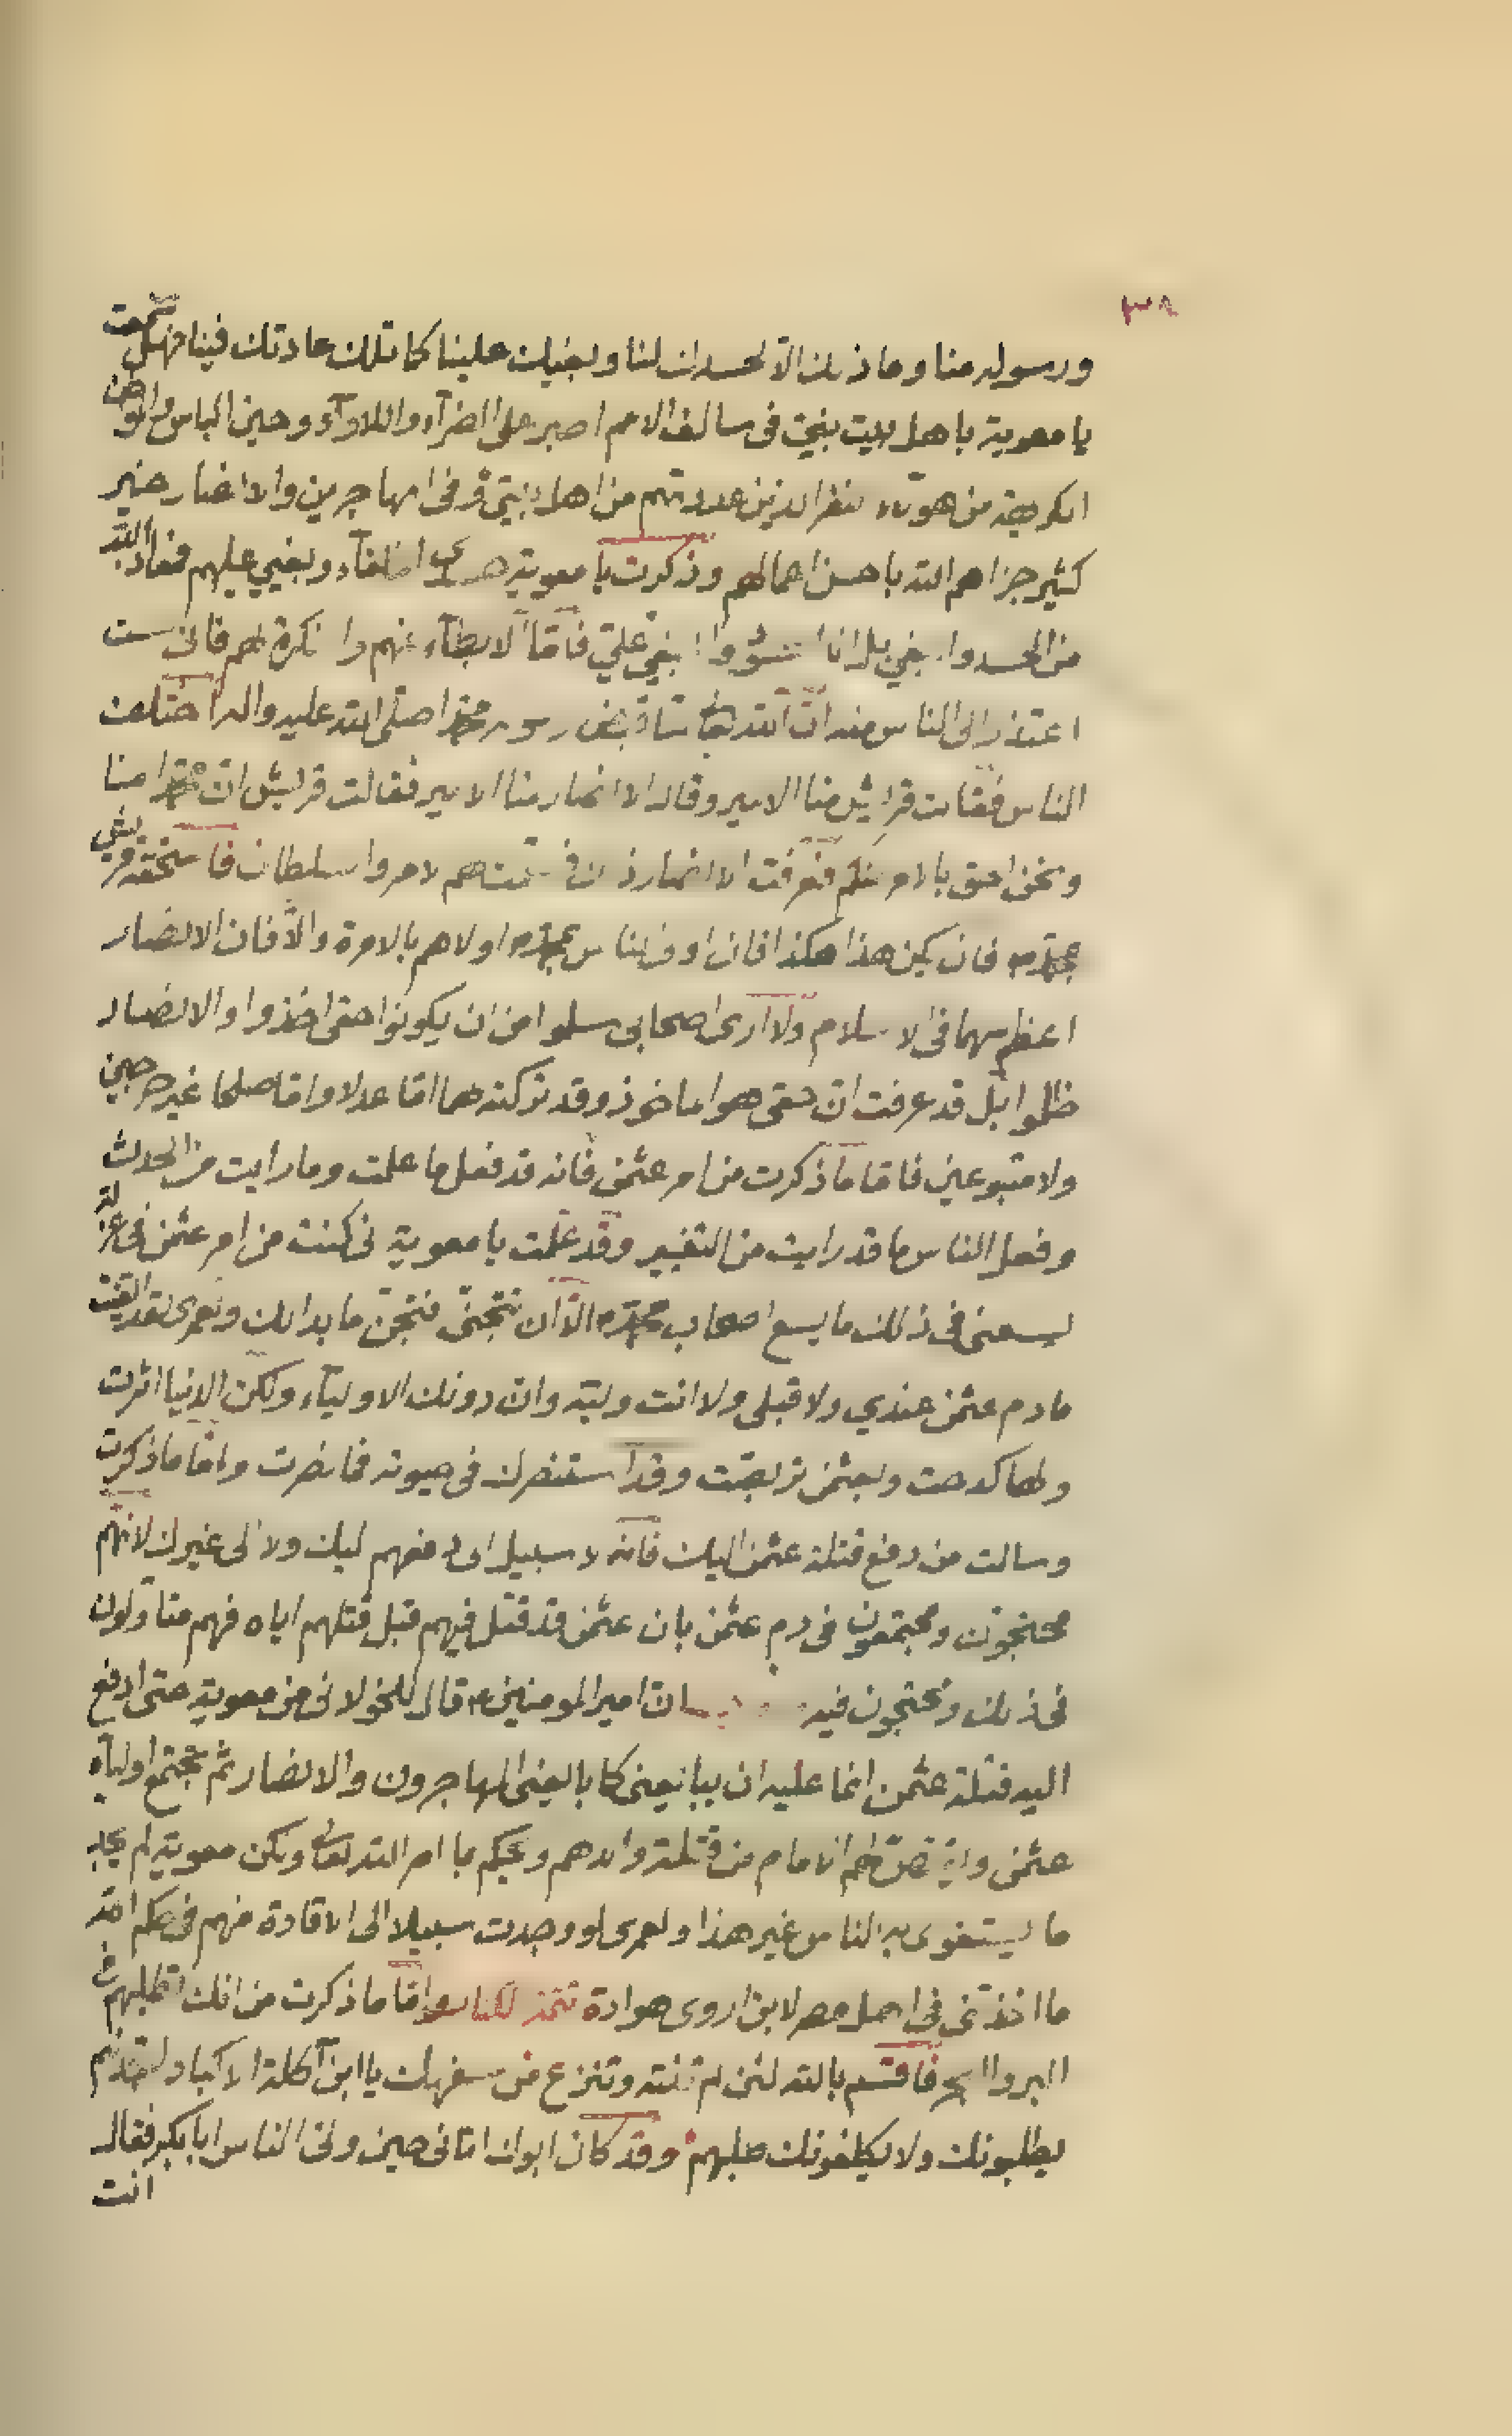 ٣٨
ورسوله منا وما ذلك الا لحسدك لنا وبغيك علينا كما تلك عادتك فينا فهل سمعت
يا معوية باهل بيت بنى فى سالف الامم اصبر على الضرآء واللاوآء وحين الباس والمواطن
الكريهة من هؤلاء النفر الذين عددتهم من اهل بيتى وفى المهاجرين والانصار خير
كثير جزاهم الله باحسن اعمالهم وذكرت يا معوية حسدى الخلفآء وبغيي عليهم فمعاذ الله
من الحسد والبغي بل انا المحسود والمبغي علي فاما الابطآء عنهم والنكرة لهم فانى لست
اعتذر الى الناس منه ان الله تعالى لما قبض رسوله محمدا صلى الله عليه واله اختلف
الناس فقالت قريش منا الامير وقال الانصار منا الامير فقالت قريش ان محمدا منا
ونحن احق بالامر منكم فعرفت الانصار ذلك فسلمت لهم الامر والسلطان فاستحقته قريش
بمحمد فان يكن هذا هكذا فان اولى الناس بمحمد اولاهم بالامرة والا فان الانصار
اعظم سهما فى الاسلام ولا ارى اصحابى سلموا من ان يكونوا حقى اخذوا والانصار
ظلموا بل قد عرفت ان حقى هو الماخوذ وقد تركته لهم اما عدلا واما صلحا غير حرجين
ولا متبوعين فاما ما ذكرت من امر عثمن فانه قد فعل ما علمت وما رايت من الحدث
وفعل الناس ما قد رايت من التغيير وقد علمت يا معوية انى كنت من امر عثمن فى عزلة
يسعنى فى ذلك ما يسع اصحاب محمد الا ان تتجنى فتجن ما بدالك ولعمرى لقد القيت
ما دم عثمن عندي ولا قبلى ولا انت وليه وان دونك الاوليآء ولكن الدنيا اثرت
ولها كدحت وبعثمن تربصت وقد استنصرك فى حيوته فما نصرت واما ما ذكرت
وسالت من دفع قتلة عثمن اليك فانه لا سبيل الى دفعهم اليك ولا الى غيرك لانهم
محتجون ومجتمعون فى دم عثمن بان عثمن قد قتل فيهم قبل قتلهم اياه فهم متاولون
فى ذلك ومحتجون فيه ان امير المومنين قال للخولانى من معوية حتى ادفع
اليه قتلة عثمن انما عليه ان يبايعنى كما بايعنى المهاجرون والانصار ثم يجتمع اوليآء
عثمن وليقتص لهم الامام من قتلة والدهم ويحكم بما امر الله تعالى ولكن معوية لم يجد
ما يستغوى به الناس غير هذا ولعمرى لو وجدت سبيلا الى الاقادة منهم فى حكم الله
ما اخذتنى فى اهل مصر لابن اروى هوادة واما ما ذكرت من انك تطلبهم فى
البر والبحر فاقسم بالله لئن لم تنته وتنزع من سفهك يا ابن آكلة الاكباد لتجدنهم
يطلبونك ولا يكلفونك طلبهم وقد كان ابوك اتانى حين ولى الناس ابا بكر فقال
انت